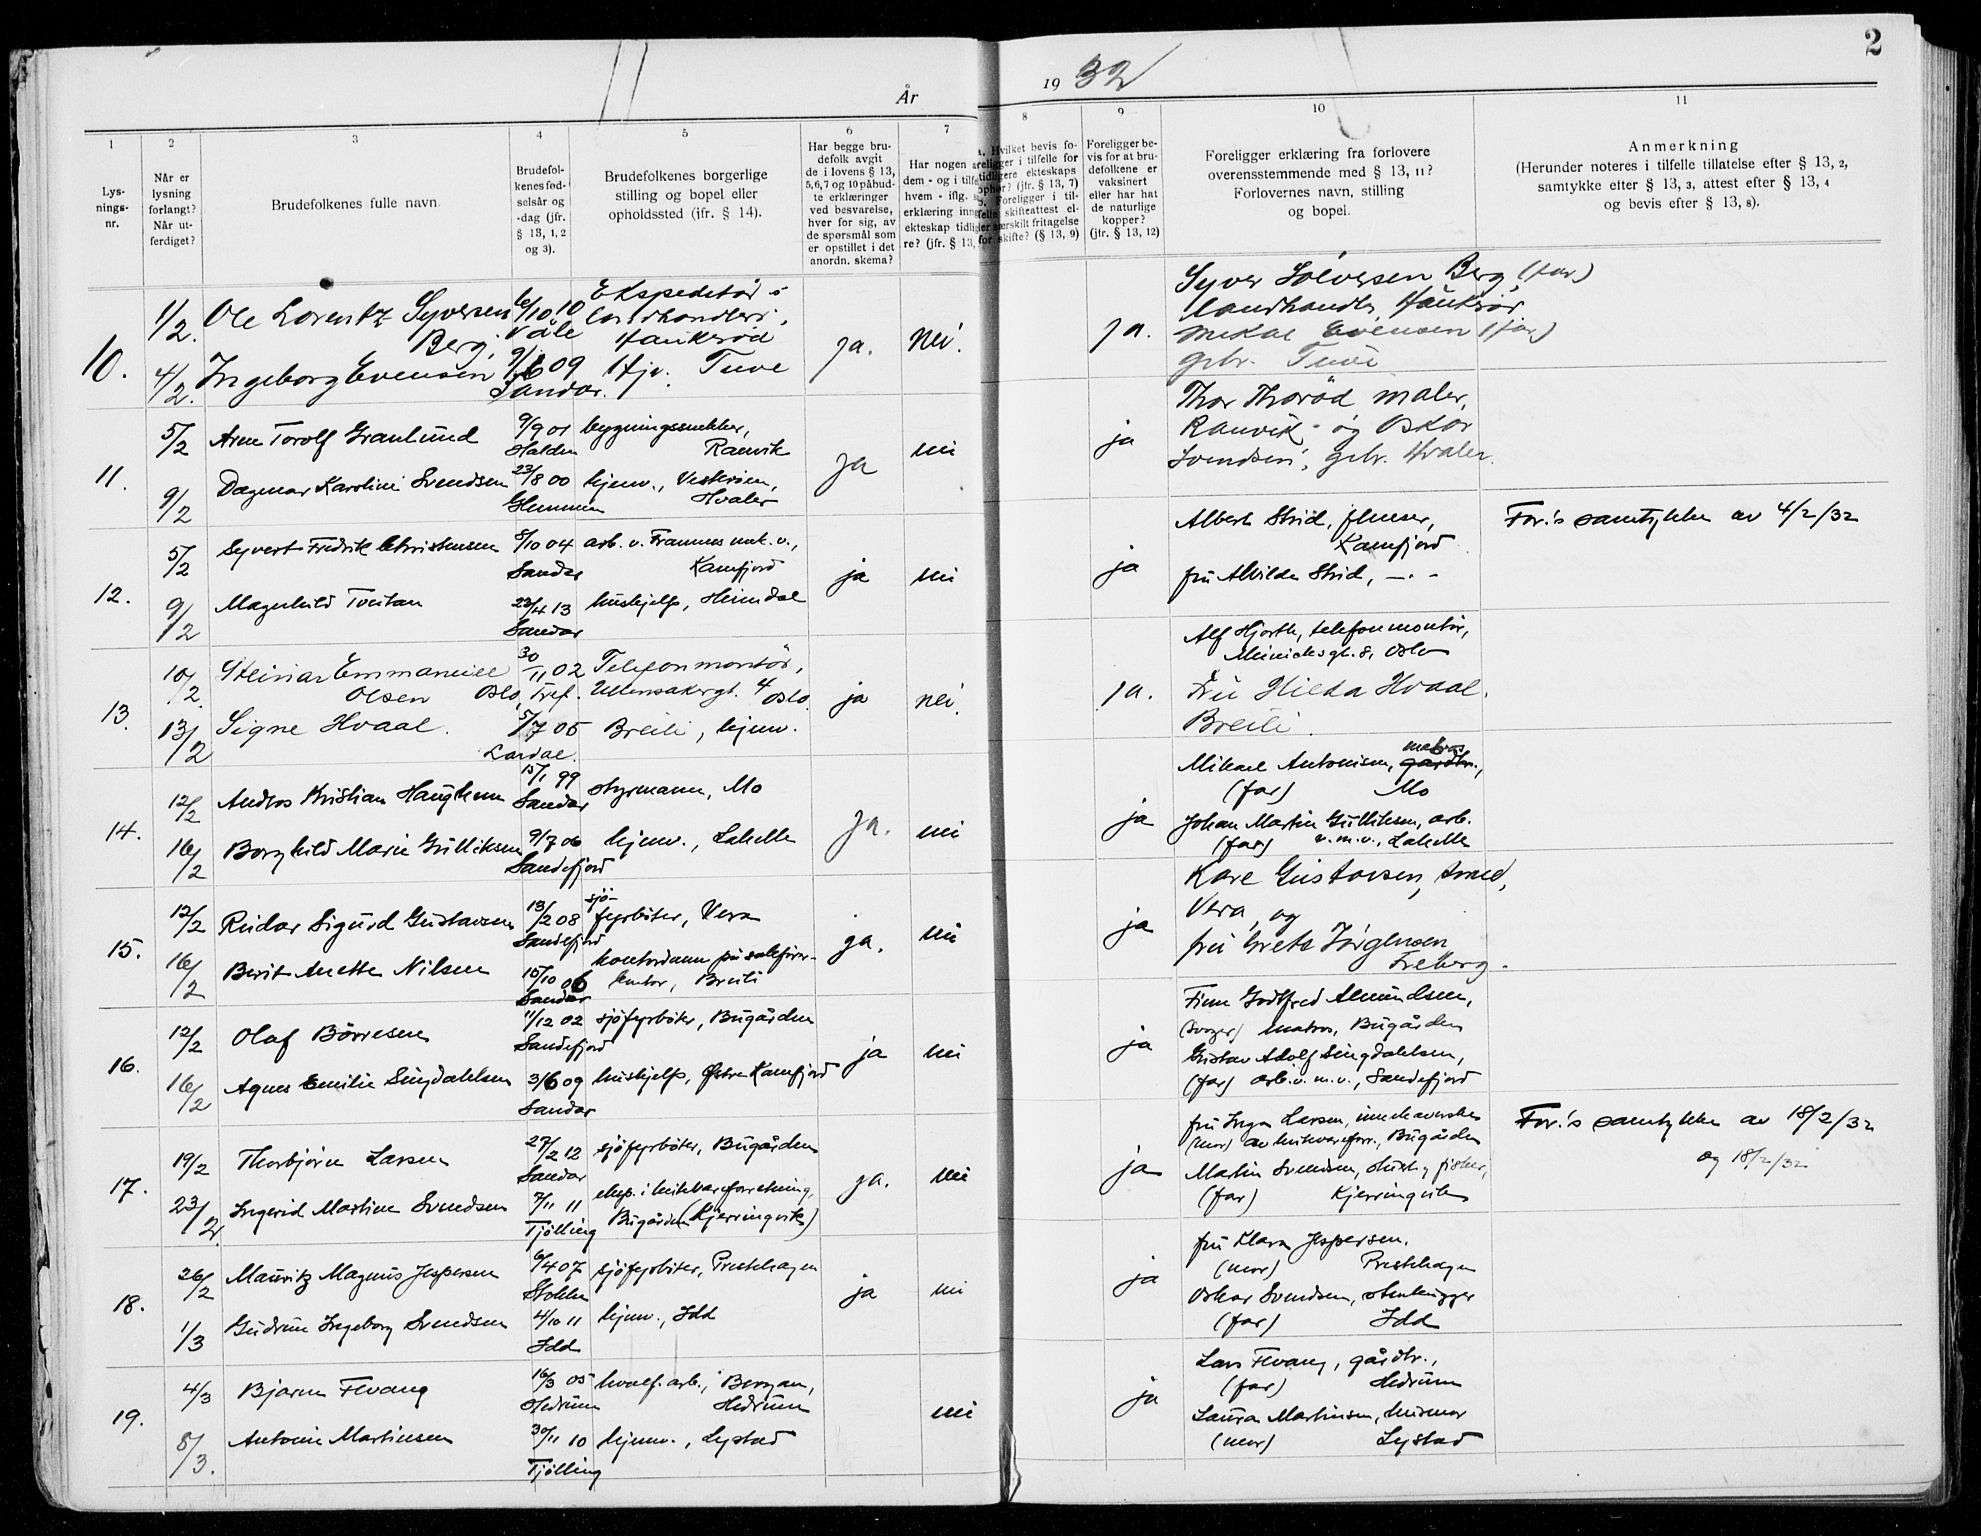 2
År
19 32
1
2
3
4
5
6
7
8
9
10
11
Lys-
nings-
nr.
Når er
lysning
forlangt?
Når ut-
ferdiget?
Brudefolkenes fulle navn.
Brudefol-
kenes fød-
selsår og
-dag (jfr.
§ 13, 1, 2
og 3).
Brudefolkenes borgerlige
stilling og bopel eller
opholdssted (jfr. § 14).
Har begge bru-
defolk avgit
de i lovens § 13,
5,6,7 og 10 påbud-
te erklæringer
ved besvarelse,
hver for sig, av
de spørsmål som
er opstillet i det
anordn. skema?
Har nogen a
dem - og i tilfe
hvem - iflg. s
erklæring inng
ekteskap tidlig
re? (jfr. § 13,
a. Hvilket bevis fo-
religger i tilfelle for
tidligere ekteskaps
ophør? (jfr. § 13, 7)
b. Foreligger i til-
felle skifteattest el-
ler særskilt fritagelse
for skifte? (§ 13, 9)
Foreligger be-
vis for at bru-
defolkene er
vaksinert
eller har hat
de naturlige
kopper?
(jfr. § 13, 12)
Foreligger erklæring fra forlovere
overensstemmende med § 13, 11?
Forlovernes navn, stilling
og bopel.
Anmerkning
(Herunder noteres i tilfelle tillatelse efter § 13, 2,
samtykke efter § 13, 3, attest efter § 13, 4
og bevis efter § 13, 8).
10.
1/2.
Ole Lorentz Syversen
Berg,
6/10 10
Våle
Ekspeditør i
landhandleri,
Haukerød
4/2.
Ingeborg Evensen
9/6 09
Sandar.
Hjv. Tuve
ja.
nei.
ja.
Syver Sølversen Berg, (far)
landhandler, Haukerød
Mikal Evensen (far)
gbr. Tuve
11.
5/2
Arne Torolf Granlund
9/9 01
Halden
bygningssnekker,
Ranvik
9/2
Dagmar Karoline Svendsen
23/8 00
Glemmen
hjemv., Vesterøen,
Hvaler
ja
nei
ja
Thor Thorød maler,
Ranvik - og Oskar
Svendsen, gbr. Hvaler.
12.
5/2
Syvert Fredrik Christensen
8/10 04
Sandar
arb. v. Framnes mek. v.,
Kamfjord
9/2
Magnhild Tveitan
23/4 13
Sandar
hushjelp, Heimdal
ja
nei
ja
Albert Strid, flenser,
Kamfjord
fru Alvilde Strid, — . -
For.'s samtykke av 4/2/32
13.
10/2.
Steinar Emmanuel
Olsen
30/11 02
Oslo, Tref.
Telefonmontør,
Ullensakergt. 4 Oslo.
13/2
Signe Hvaal.
5/7 05
Lardal.
Breili, hjemv.
ja
nei.
ja.
Alf Hjorth, telefonmontør,
Meinichsgt. 8, Oslo
Fru Hilda Hvaal.
Breili.
14.
12/2
Andros Kristian Haughem
15/1 99
Sandar
styrmann, Mo
16/2
Borghild Marie Gulliksen
9/7 06
Sandefjord
hjemv., Lahelle
ja.
nei
ja
matros
Mikael Antonisen, gårdbr.,
(far) Mo
Johan Martin Gulliksen, arb.
(far) v. m. v., Lahelle
15.
12/2
Reidar Sigurd Gustavsen
13/2 08
Sandefjord
sjø-
fyrbøter, Vera
16/2
Berit Anette Nilsen
15/10 06
Sandar
kontordame på sakfører-
kontor, Breili
ja.
nei
ja
Kåre Gustavsen, smed,
Vera, og
fru Grete Jørgensen
Freberg.
16.
12/2
Olaf Børresen
11/12 02
Sandefjord
sjøfyrbøter, Bugården
16/2
Agnes Emilie Singdahlsen
3/6 09
Sandar
hushjelp, Østre Kamfjord
ja
nei
ja
Finn Godtfred Amundsen,
(svoger) matros, Bugården
Gustav Adolf Singdahlsen,
(far) arb. v. m. v., Sandefjord
17.
19/2
Thorbjørn Larsen
27/2 12
Sandar
sjøfyrbøter, Bugården
23/2.
Ingerid Martine Svendsen
7/11 11
Tjølling
eksp. i hvitvareforretning,
Bugården (Kjerringvik)
ja.
nei
ja
fru Inga Larsen, innehaverske
(mor) av hvitvareforr., Bugården
Martin Svendsen, fisker,
(far) Kjerringvik
For.'s samtykke av 18/2/32
og 18/2/32
18.
26/2
Mauritz Magnus Jespersen
6/4 07
Stokke
sjøfyrbøter, Prestehagen
1/3
Gudrun Ingeborg Svendsen
4/10 11
Idd
hjemv., Idd
ja
nei
ja
fru Klara Jespersen.
(mor) Prestehagen
Oskar Svendsen, stenhugger
(far) Idd
19.
4/3
Bjarne Hvang
16/3 05
Hedrum
hvalf. arb., Bergan,
Hedrum
8/3.
Antonie Martinsen
30/11 10
Tjølling
hjemv., Lystad
nei
ja
Lars Hvang, gårdbr.,
(far) Hedrum
Laura Martinsen, husmor
(mor) Lystad